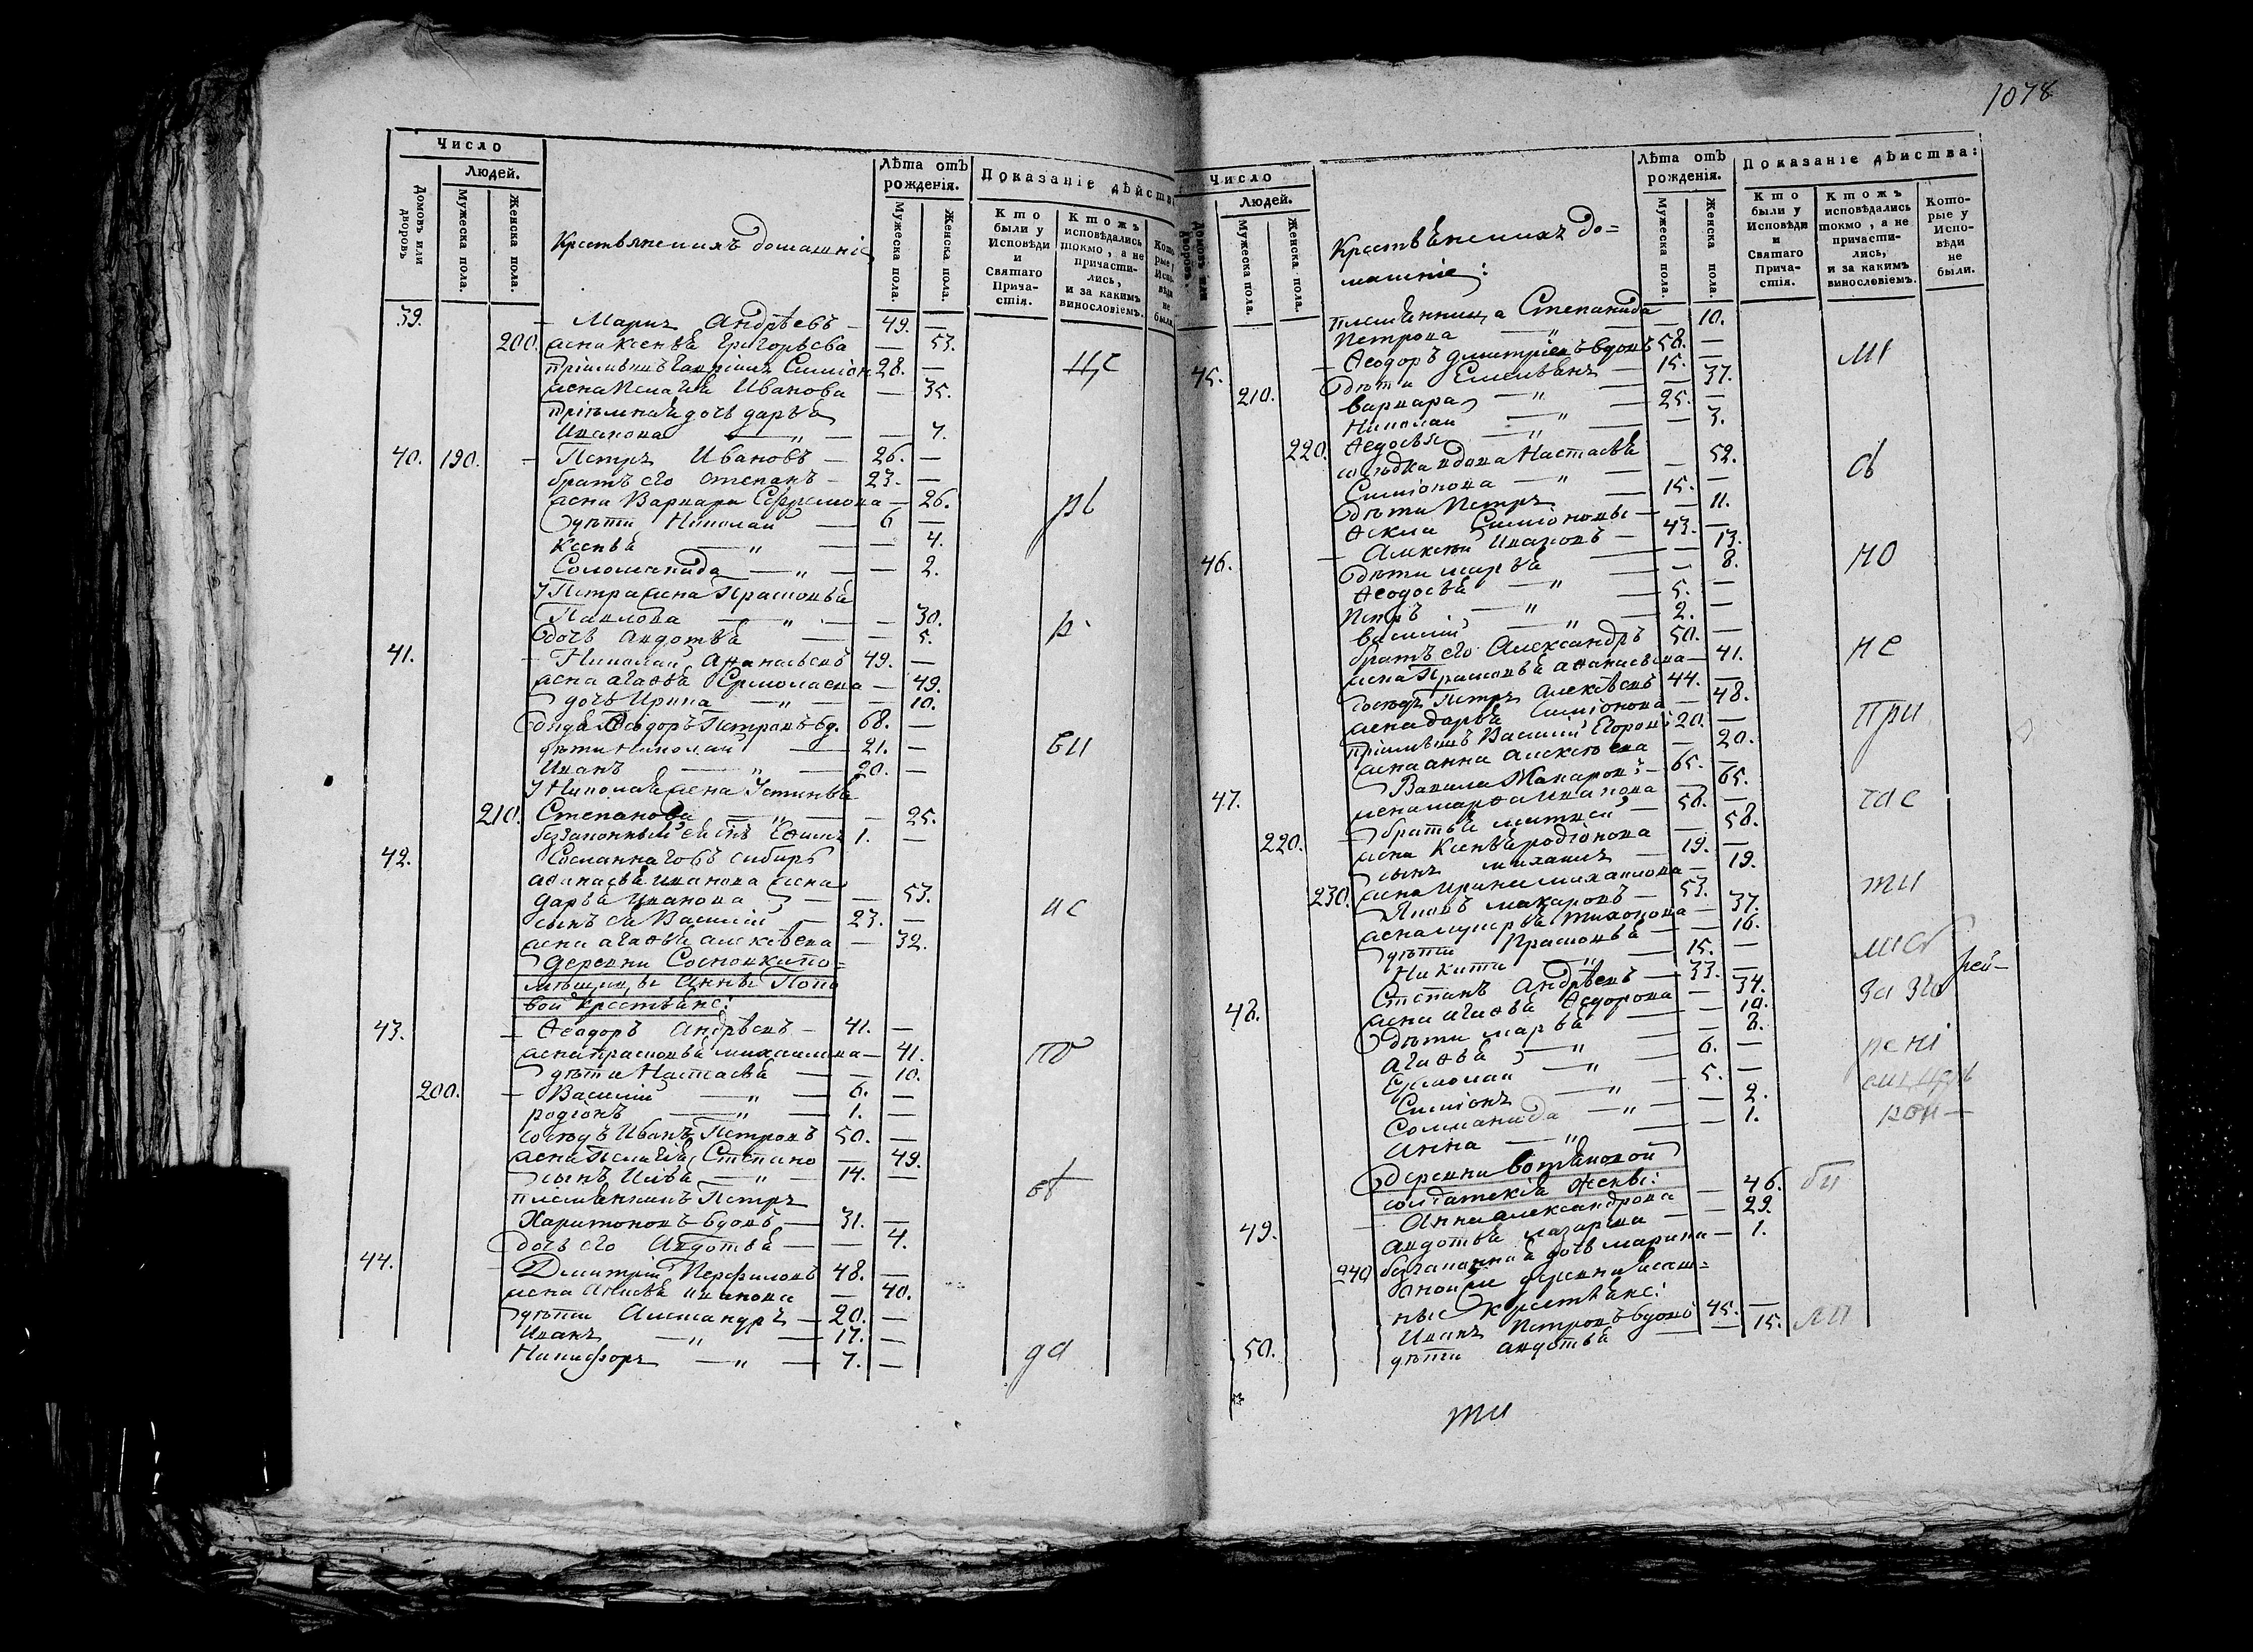 1078
Число
Людей.
Домовъ или дворовъ.
Мужеска пола.
Женска пола.
Крестьянскихъ домашніе
Лѣта отъ рожденія.
Мужеска пола.
Женска пола.
Показаніе дѣйств
Кто были у Исповѣди и Святаго Причастія.
Ктожъ исповѣдались токмо, а не причастились, и за какимъ винословіемъ.
39. — Андрѣевъ — 49. —
200. жена Ксенья Григорьева — 53.
28. —
жена Пелагѣя Иванова — 35.
Цс
пріемная дочь дарья
Иванова — „ — — 7.
40. 190. — Петръ Ивановъ — 26. —
братъ его степанъ — 23. —
жена Варвара Ефремова — 26.
дѣти Николай — 6 —
рь
Ксенья — „ — — 4.
Соломанида — „ — — 2.
У Петра жена Прасковья
Павлова — „ — — 30.
дочь авдотья — — 5.
41. — Николай Афанасьевъ 49. —
жена агафья Ермолаева — 49.
дочь Ирина — „ — — 10.
дядя Феодоръ Петровъ вд. 68. —
дѣти Николай — 21. —
ви
Иванъ — „ — 20. —
У Николая жена Устинья
210. Степанова — „ — — 25.
беззаконный ея сынъ Ефимъ 1. —
42. Сосланнаго въ сибирь
афанасья иванова жена
дарья Иванова — — 53.
ис
сынъ ея Василій — 23. —
жена агафья алексѣева — 32.
деревни Сосновки по=
мѣщицы Анны Попо
вой крестьяне:
43. — Феодоръ Андрѣевъ — 41. —
жена прасковья михайлова — 41.
дѣти Настасья — — 10.
200. — Василій — „ — 6. —
родіонъ — „ — 1. —
сосѣдъ Иванъ Петровъ 50. —
жена Пелагѣя Степано — 49.
сынъ Илья — „ — 14. —
племянникъ Петръ
Харитоновъ вдовъ — 31. —
дочь его Авдотья — — 4.
44. — Дмитрій Перфиловъ 48. —
жена иванова — 40.
дѣти Александръ — 20. —
Иванъ — „ — 17. —
Никифоръ — „ — 7. —
да
Число
Людей.
Домовъ или дворовъ.
Мужеска пола.
Женска пола.
Крестьянскихъ до=
машніе:
Лѣта отъ рожденія.
Мужеска пола.
Женска пола.
Показаніе дѣйства:
Кто были у Исповѣди и Святаго Причастія.
Ктожъ исповѣдались токмо, а не причастились, и за какимъ винословіемъ.
Которые у Исповѣди не были.
племянница Степанида
Петрова — „ — — 10.
45. — Феодоръ дмитріевъ вдовъ 58. —
210. дѣти Емельянъ — 15. —
варвара — „ — — 37.
Николай — „ — 25. —
220. Федосья — „ — — 3.
сосѣдка вдова Настасья
Симіонова — „ — — 52.
дѣти Петръ — 15. —
Фекла Симіоновы — — 11.
46. — Алексѣй Ивановъ — 43. —
дѣти марья — — 13.
Феодосья — „ — — 8.
но
Петръ — „ — 5. —
василій — „ — 2. —
братъ его Александръ 50. —
жена Прасковья афанасьева — 41.
не
сосѣдъ Петръ Алексѣевъ 44. —
жена дарья Симіонова — 48.
Василій Егоровъ 20. —
при
жена анна алексѣева — 20.
47. Вавила Макаровъ — 65. —
жена марфа Иванова — 65.
братья — 58. —
час
220. жена Ксенья родіонова — 58.
сынъ михаилъ — 19. —
230. жена ирина михайлова — 19.
Яковъ макаровъ — 53. —
ти
жена лукерья тихонова — 37.
дѣти Прасковья — — 16.
Никита — „ — 15. —
48. Степанъ Андрѣевъ — 33. —
жена агафья Федорова — 34.
дѣти марья — — 10.
агафья — „ — — 8.
Ермолай — „ — 6. —
Симіонъ — „ — 5. —
Соломанида — „ — — 2.
анна — „ — — 1.
солдатскія жены:
49. — Анна александрова — 46.
авдотья лазарева — — 29.
240 беззаконная дочь марина — 1.
тойже деревни
крестьяне:
50. Иванъ Петровъ вдовъ 45. —
дѣти авдотья — — 15.
ти